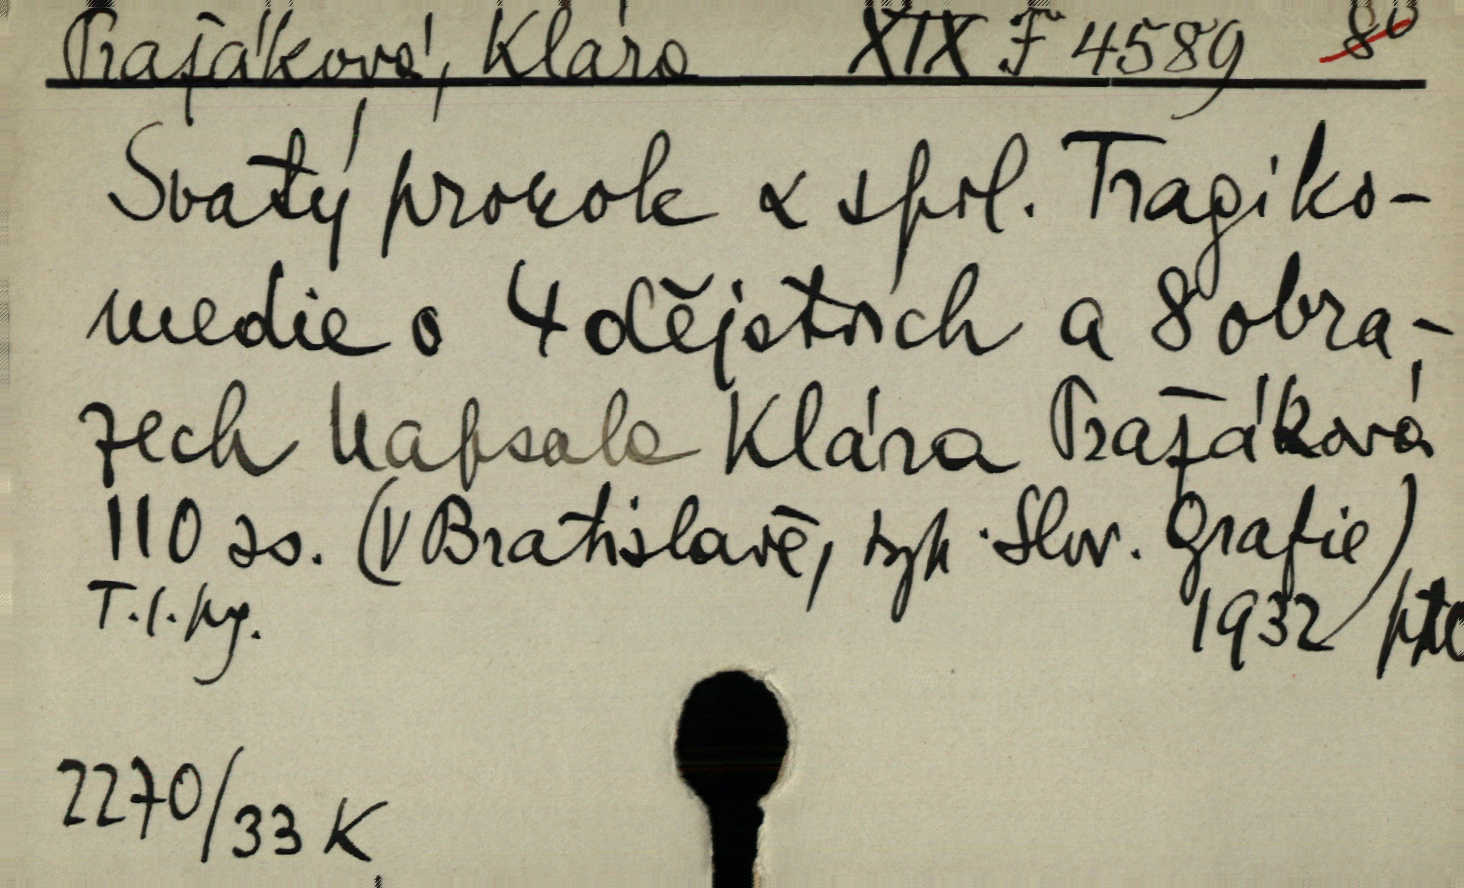 Pražáková, Klára XIX F 4589 8°
Svatý prorok & spol. Tragiko-
medie o 4 dějstvích a 8 obra-
zech Napsala Klára Pražáková
110 ss. (V Bratislavě, typ. Slov. Grafie)
T.l.pg. 1932
2270/33 K